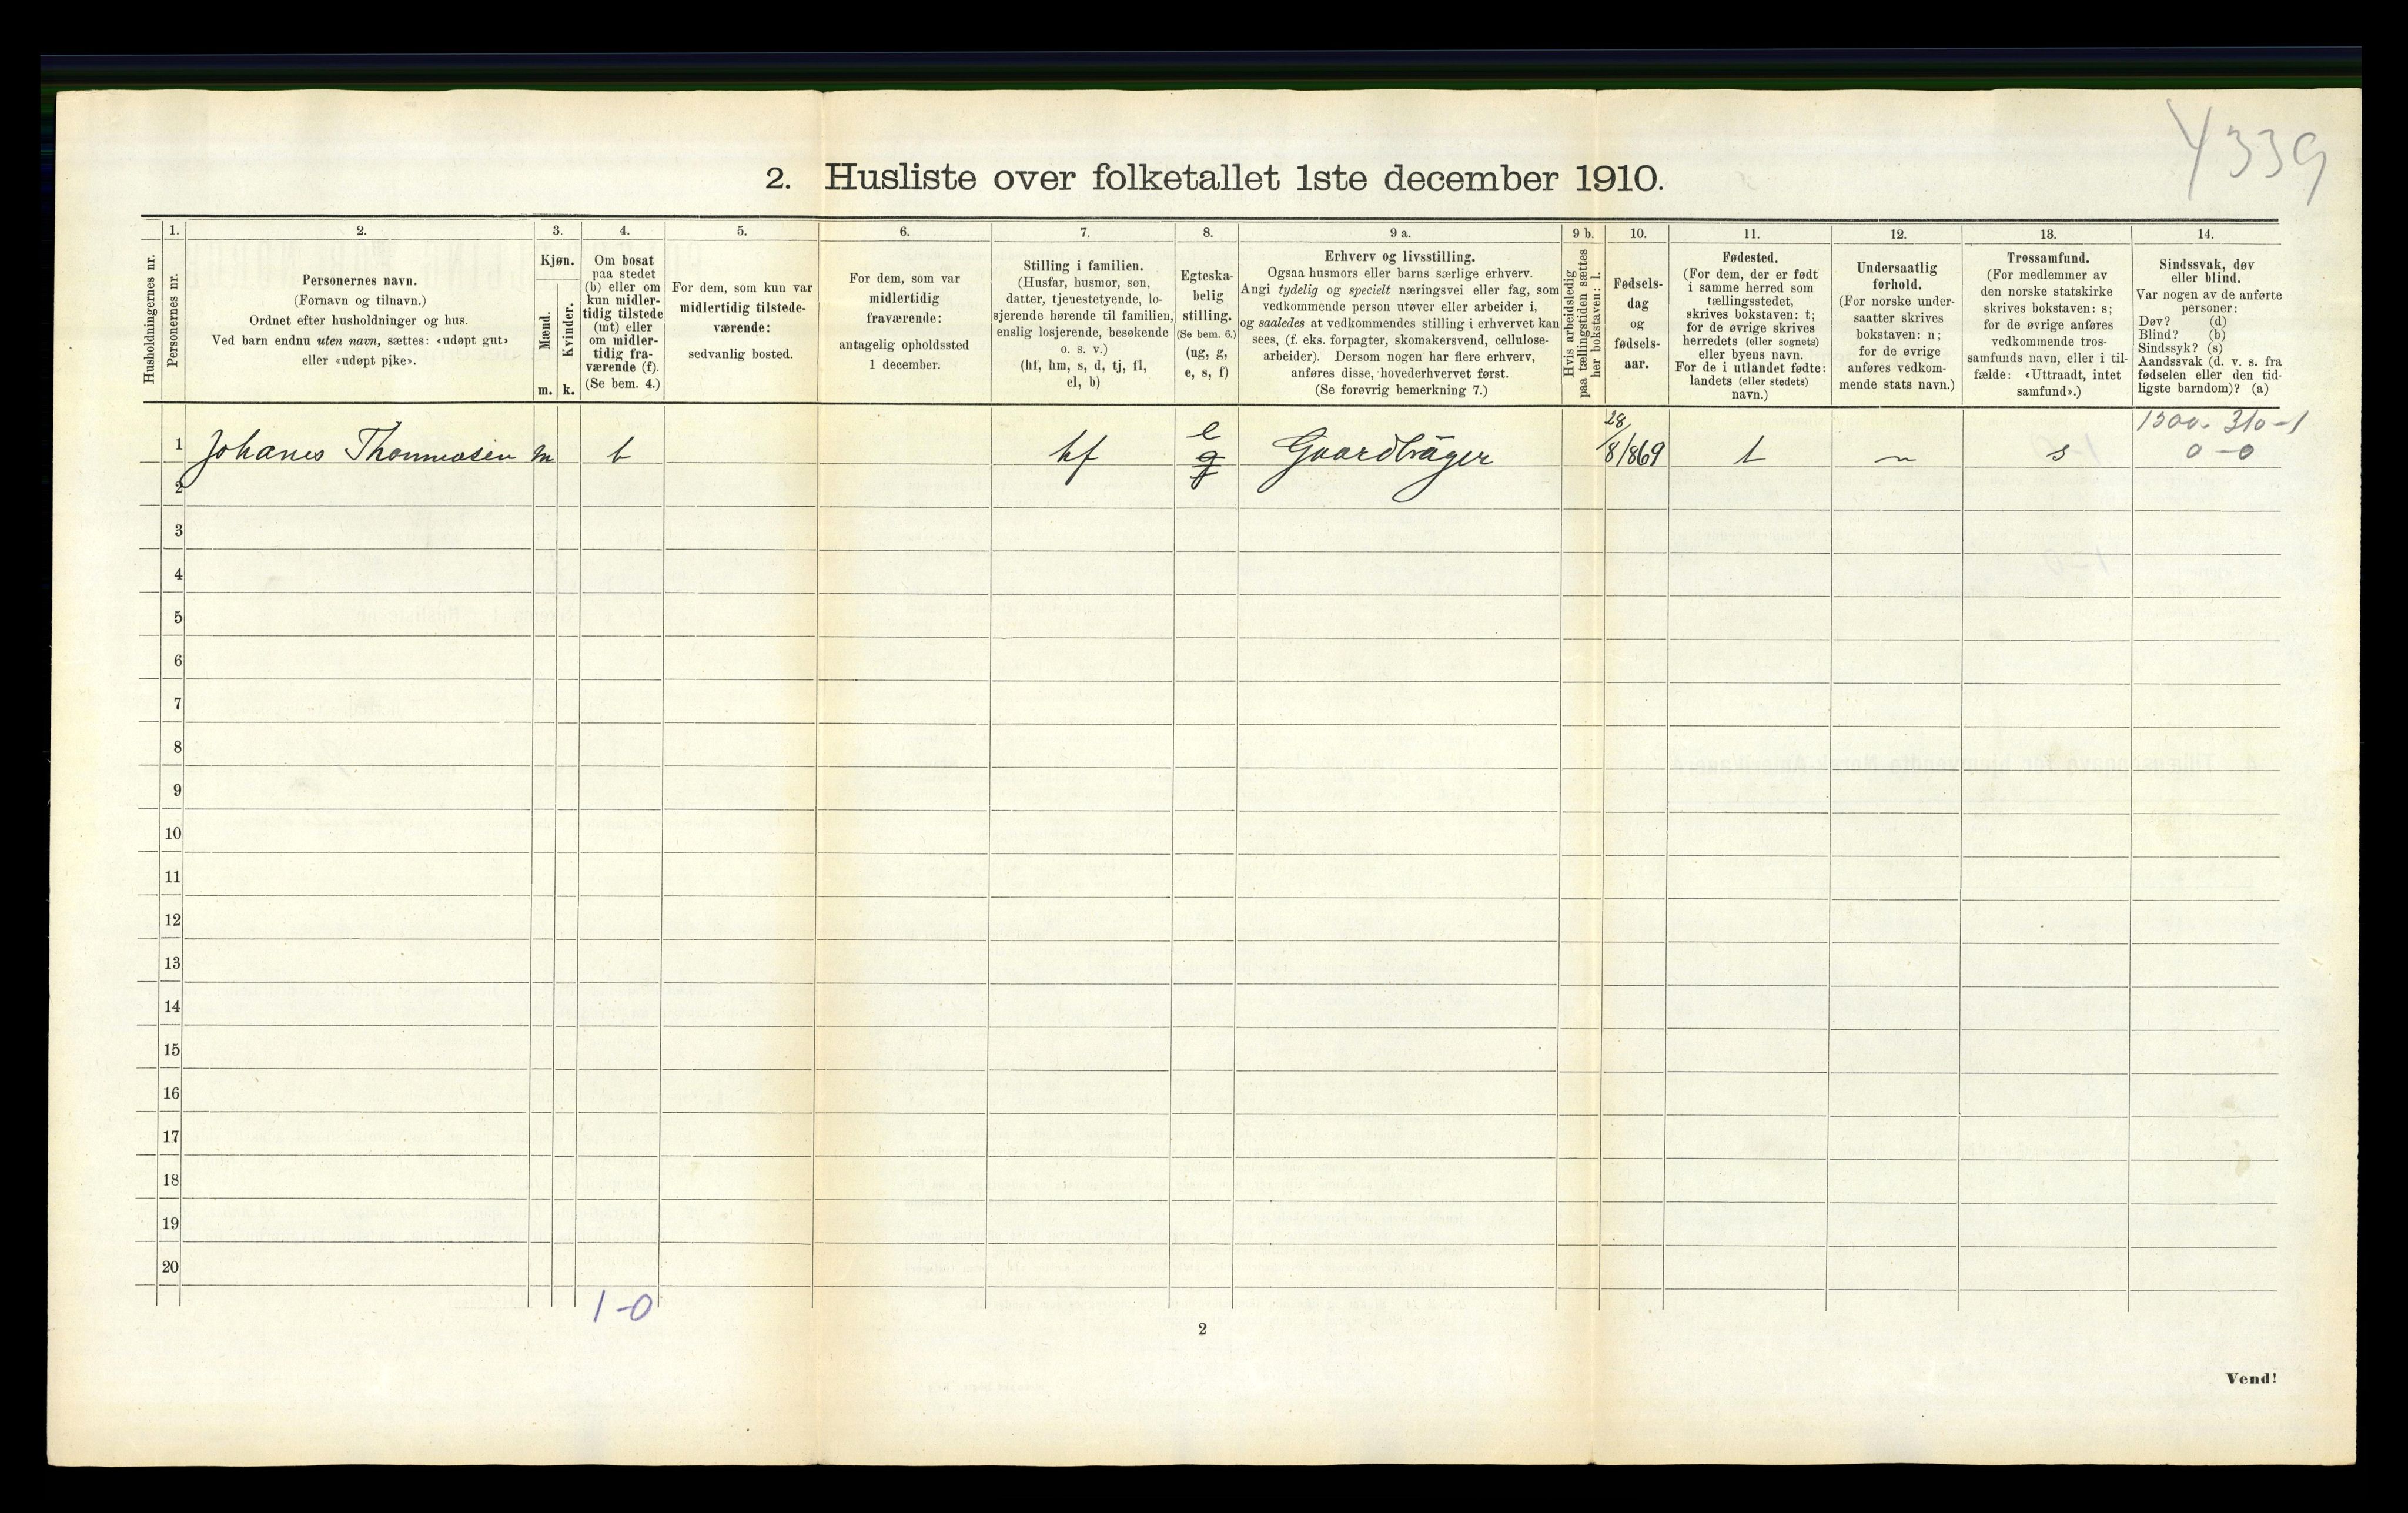 4339
2. Husliste over folketallet 1ste december 1910.
Husholdningernes nr.
1.
Personernes nr.
2.
Personernes navn.
(Fornavn og tilnavn.)
Ordnet efter husholdninger og hus.
Ved barn endnu uten navn, sættes: «udøpt gut»
eller «udøpt pike».
3.
Kjøn.
Mænd.
m.
Kvinder.
k.
4.
Om bosat
paa stedet
(b) eller om
kun midler-
tidig tilstede
(mt) eller
om midler-
tidig fra-
værende (f).
(Se bem. 4.)
5.
For dem, som kun var
midlertidig tilstede-
værende:
sedvanlig bosted.
6.
For dem, som var
midlertidig
fraværende:
antagelig opholdssted
1 december.
7.
Stilling i familien.
(Husfar, husmor, søn,
datter, tjenestetyende, lo-
sjerende hørende til familien,
enslig losjerende, besøkende
o. s. v.)
(hf, hm, s, d, tj, fl,
el, b)
8.
Egteska-
belig
stilling.
(Se bem. 6.)
(ug, g,
e, s, f)
9 a.
Erhverv og livsstilling.
Ogsaa husmors eller barns særlige erhverv.
Angi tydelig og specielt næringsvei eller fag, som
vedkommende person utøver eller arbeider i,
og saaledes at vedkommendes stilling i erhvervet kan
sees, (f. eks. forpagter, skomakersvend, cellulose-
arbeider). Dersom nogen har flere erhverv,
anføres disse, hovederhvervet først.
(Se forøvrig bemerkning 7.)
9 b.
Hvis arbeidsledig
paa tællingstiden sættes
her bokstaven: l.
10.
Fødsels-
dag
og
fødsels-
aar.
11.
Fødested.
(For dem, der er født
i samme herred som
tællingsstedet,
skrives bokstaven: t;
for de øvrige skrives
herredets (eller sognets)
eller byens navn.
For de i utlandet fødte:
landets (eller stedets)
navn.)
12.
Undersaatlig
forhold.
(For norske under-
saatter skrives
bokstaven: n;
for de øvrige
anføres vedkom-
mende stats navn.)
13.
Trossamfund.
(For medlemmer av
den norske statskirke
skrives bokstaven: s;
for de øvrige anføres
vedkommende tros-
samfunds navn, eller i til-
fælde: «Uttraadt, intet
samfund».)
14.
Sindssvak, døv
eller blind.
Var nogen av de anførte
personer:
Døv? (d)
Blind? (b)
Sindssyk? (s)
Aandssvak (d. v. s. fra
fødselen eller den tid-
ligste barndom)? (a)
1 Johanes Thommasen m b hf e g Gaardbruger 28/8/869 t n s 1300-310-1
0-0
2
3
4
5
6
7
8
9
10
11
12
13
14
15
16
17
18
19
20
1-0
2
Vend!